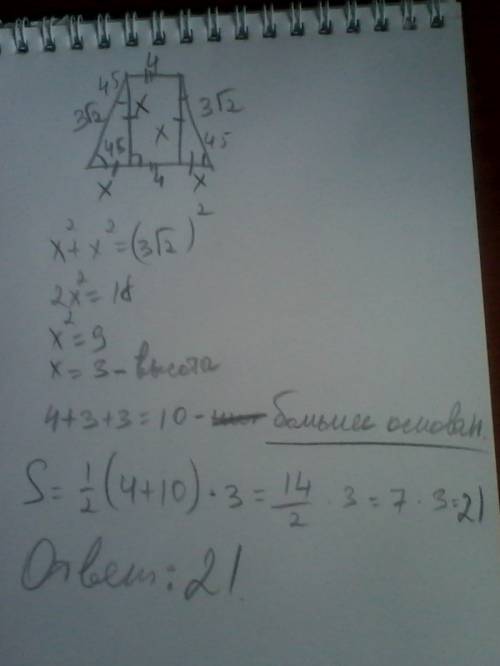 4
45
3√2
x
x
3√2
45
45
x
4
x
x² + x² = (3√2)²
2x² = 18
x² = 9
x = 3 - высота
4+3+3=10 - большее основан.
S = 1/2 (4+10) · 3 = 14/2 · 3 = 7 · 3 = 21
Ответ: 21